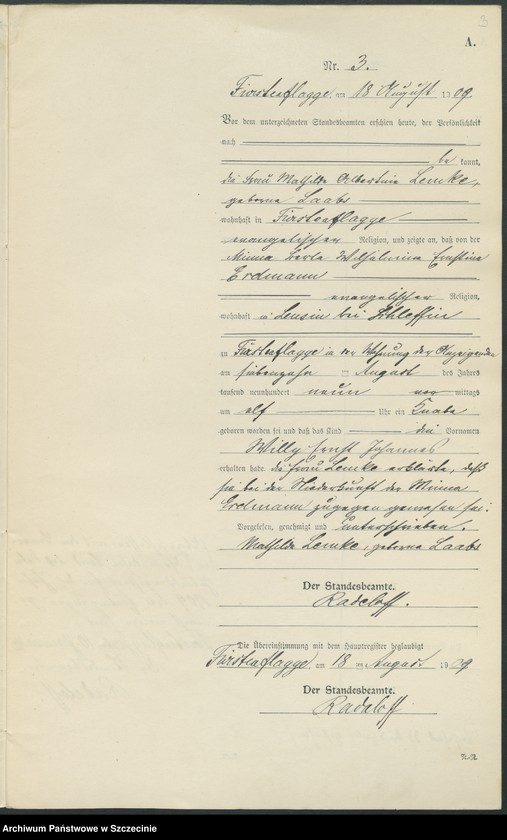 3
A.
Nr. 3.
Fürstenflagge, am 18 August 1909
Vor dem unterzeichneten Standesbeamten erschien heute, der Persönlichkeit
nach
be kannt,
die Frau Mathilde Albertine Lemke,
geborne Laabs
wohnhaft in Fürstenflagge
evangelischer Religion, und zeigte an, daß von der
Minna Berta Wilhelmine Ernstine
Erdmann
evangelischer Religion,
wohnhaft in Lensin bei
zu Fürstenflagge in der Wohnung der Anzeigenden
am siebenzehn ten August des Jahres
tausend neunhundert neun vor mittags
um elf Uhr ein Knabe
geboren worden sei und daß das Kind die Vornamen
Willy Ernst Johannes
erhalten habe. die Frau Lemke erklärte, daß
sie bei der Niederkunft der Minna
Erdmann zugegen gewesen sei.
Vorgelesen, genehmigt und unterschrieben.
Mathilde Lemke, geborne Laabs
Der Standesbeamte.
Radeloff.
Die Übereinstimmung mit dem Hauptregister beglaubigt
Fürstenflagge, am 18 ten August 1909
Der Standesbeamte.
Radeloff
Archiwum Państwowe w Szczecinie